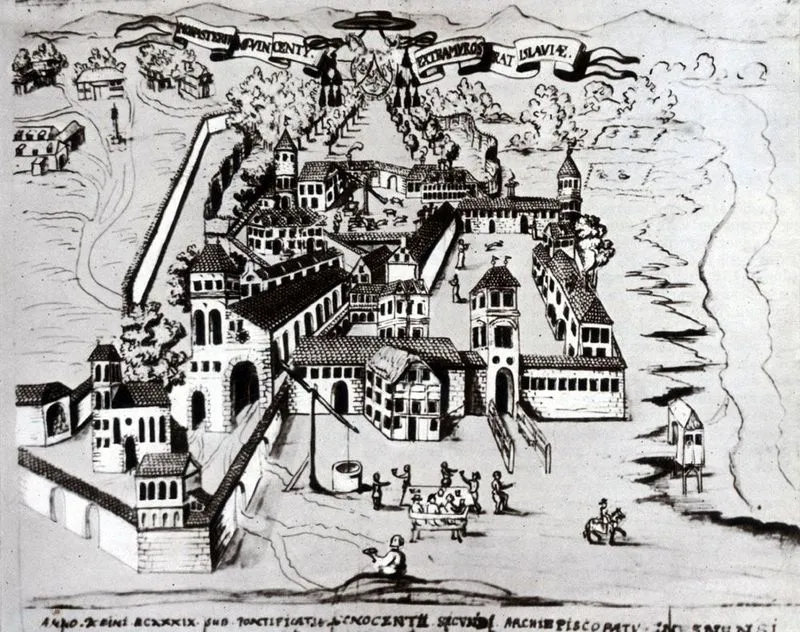 MONASTERIVM S VINCENTY
EXTRAMVROS RAT ISLAVIÆ.
ANNO. DOMINI MCXXXIX. SUB PONTIFICATV INNOCENTII SECVNDI ARCHIEPISCOPATV.